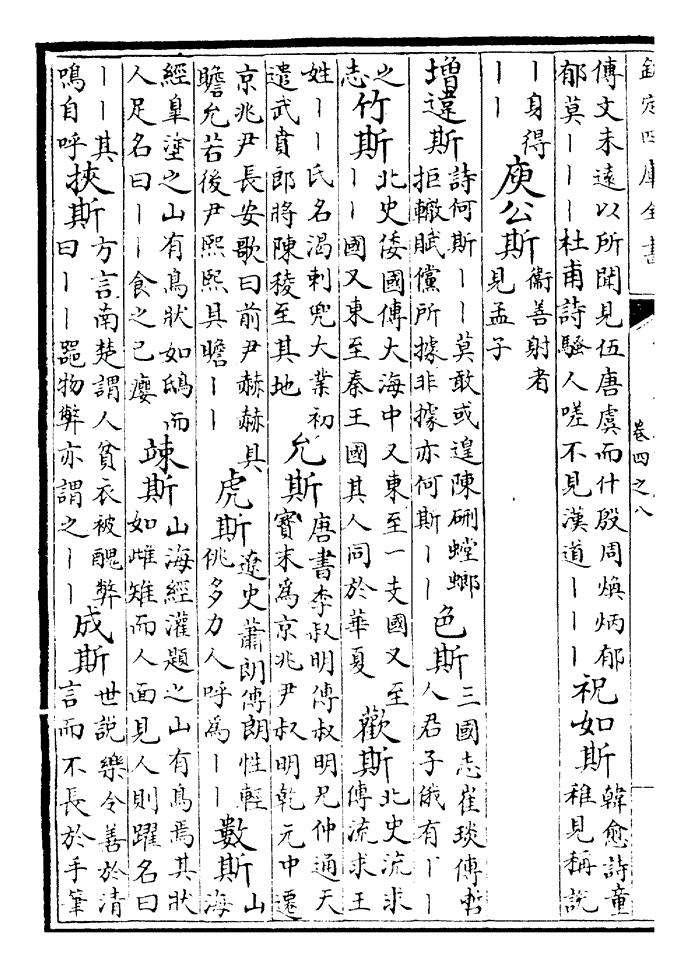 欽定四庫全書
卷四之八
傳文未遠以所聞見伍唐虞而什殷周煥炳郁
郁莫｜｜｜杜甫詩騷人嗟不見漢道｜｜｜
祝如斯
韓愈詩童
稚見稱說
｜身得
｜｜
庾公斯
衞善射者
見孟子
增違斯
詩何斯｜｜莫敢或遑陳硎螳螂
拒轍賦儻所據非據亦何斯｜｜
色斯
三國志崔琰傳哲
人君子俄有｜｜
之
志
竹斯
北史倭國傳大海中又東至一支國又至
｜｜國又東至秦王國其人同於華夏
歡斯
北史流求
傳流求王
姓｜｜氏名渴剌兜大業初
遣武賁郎將陳稜至其地
允斯
唐書李叔明傳叔明兄仲通天
寶末爲京兆尹叔明乾元中遷
京兆尹長安歌曰前尹赫赫具
瞻允若後尹熙熙具瞻｜｜
虎斯
遼史蕭朗傳朗性輕
佻多力人呼爲｜｜
數斯
山
海
經皐塗之山有鳥狀如鴟而
人足名曰｜｜食之已癭
竦斯
山海經灌題之山有鳥焉其狀
如雌雉而人面見人則躍名曰
｜｜其
鳴自呼
挾斯
方言南楚謂人貧衣被醜弊
曰｜｜器物弊亦謂之｜｜
成斯
世説樂令善於清
言而不長於手筆